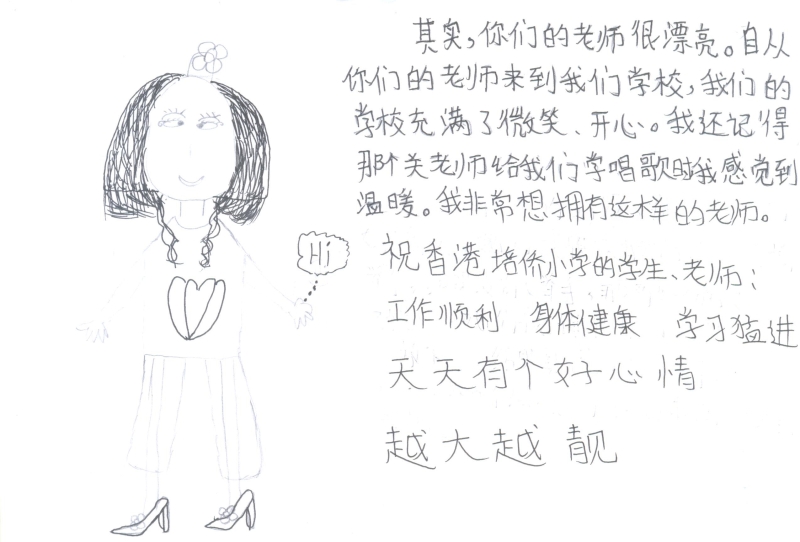 其实，你们的老师很漂亮。自从
你们的老师来到我们学校，我们的
学校充满了微笑、开心。我还记得
那个关老师给我们学唱歌时我感觉到
温暖。我非常想拥有这样的老师。
Hi
祝香港培侨小学的学生、老师：
工作顺利 身体健康 学习猛进
天天有个好心情
越大越靓